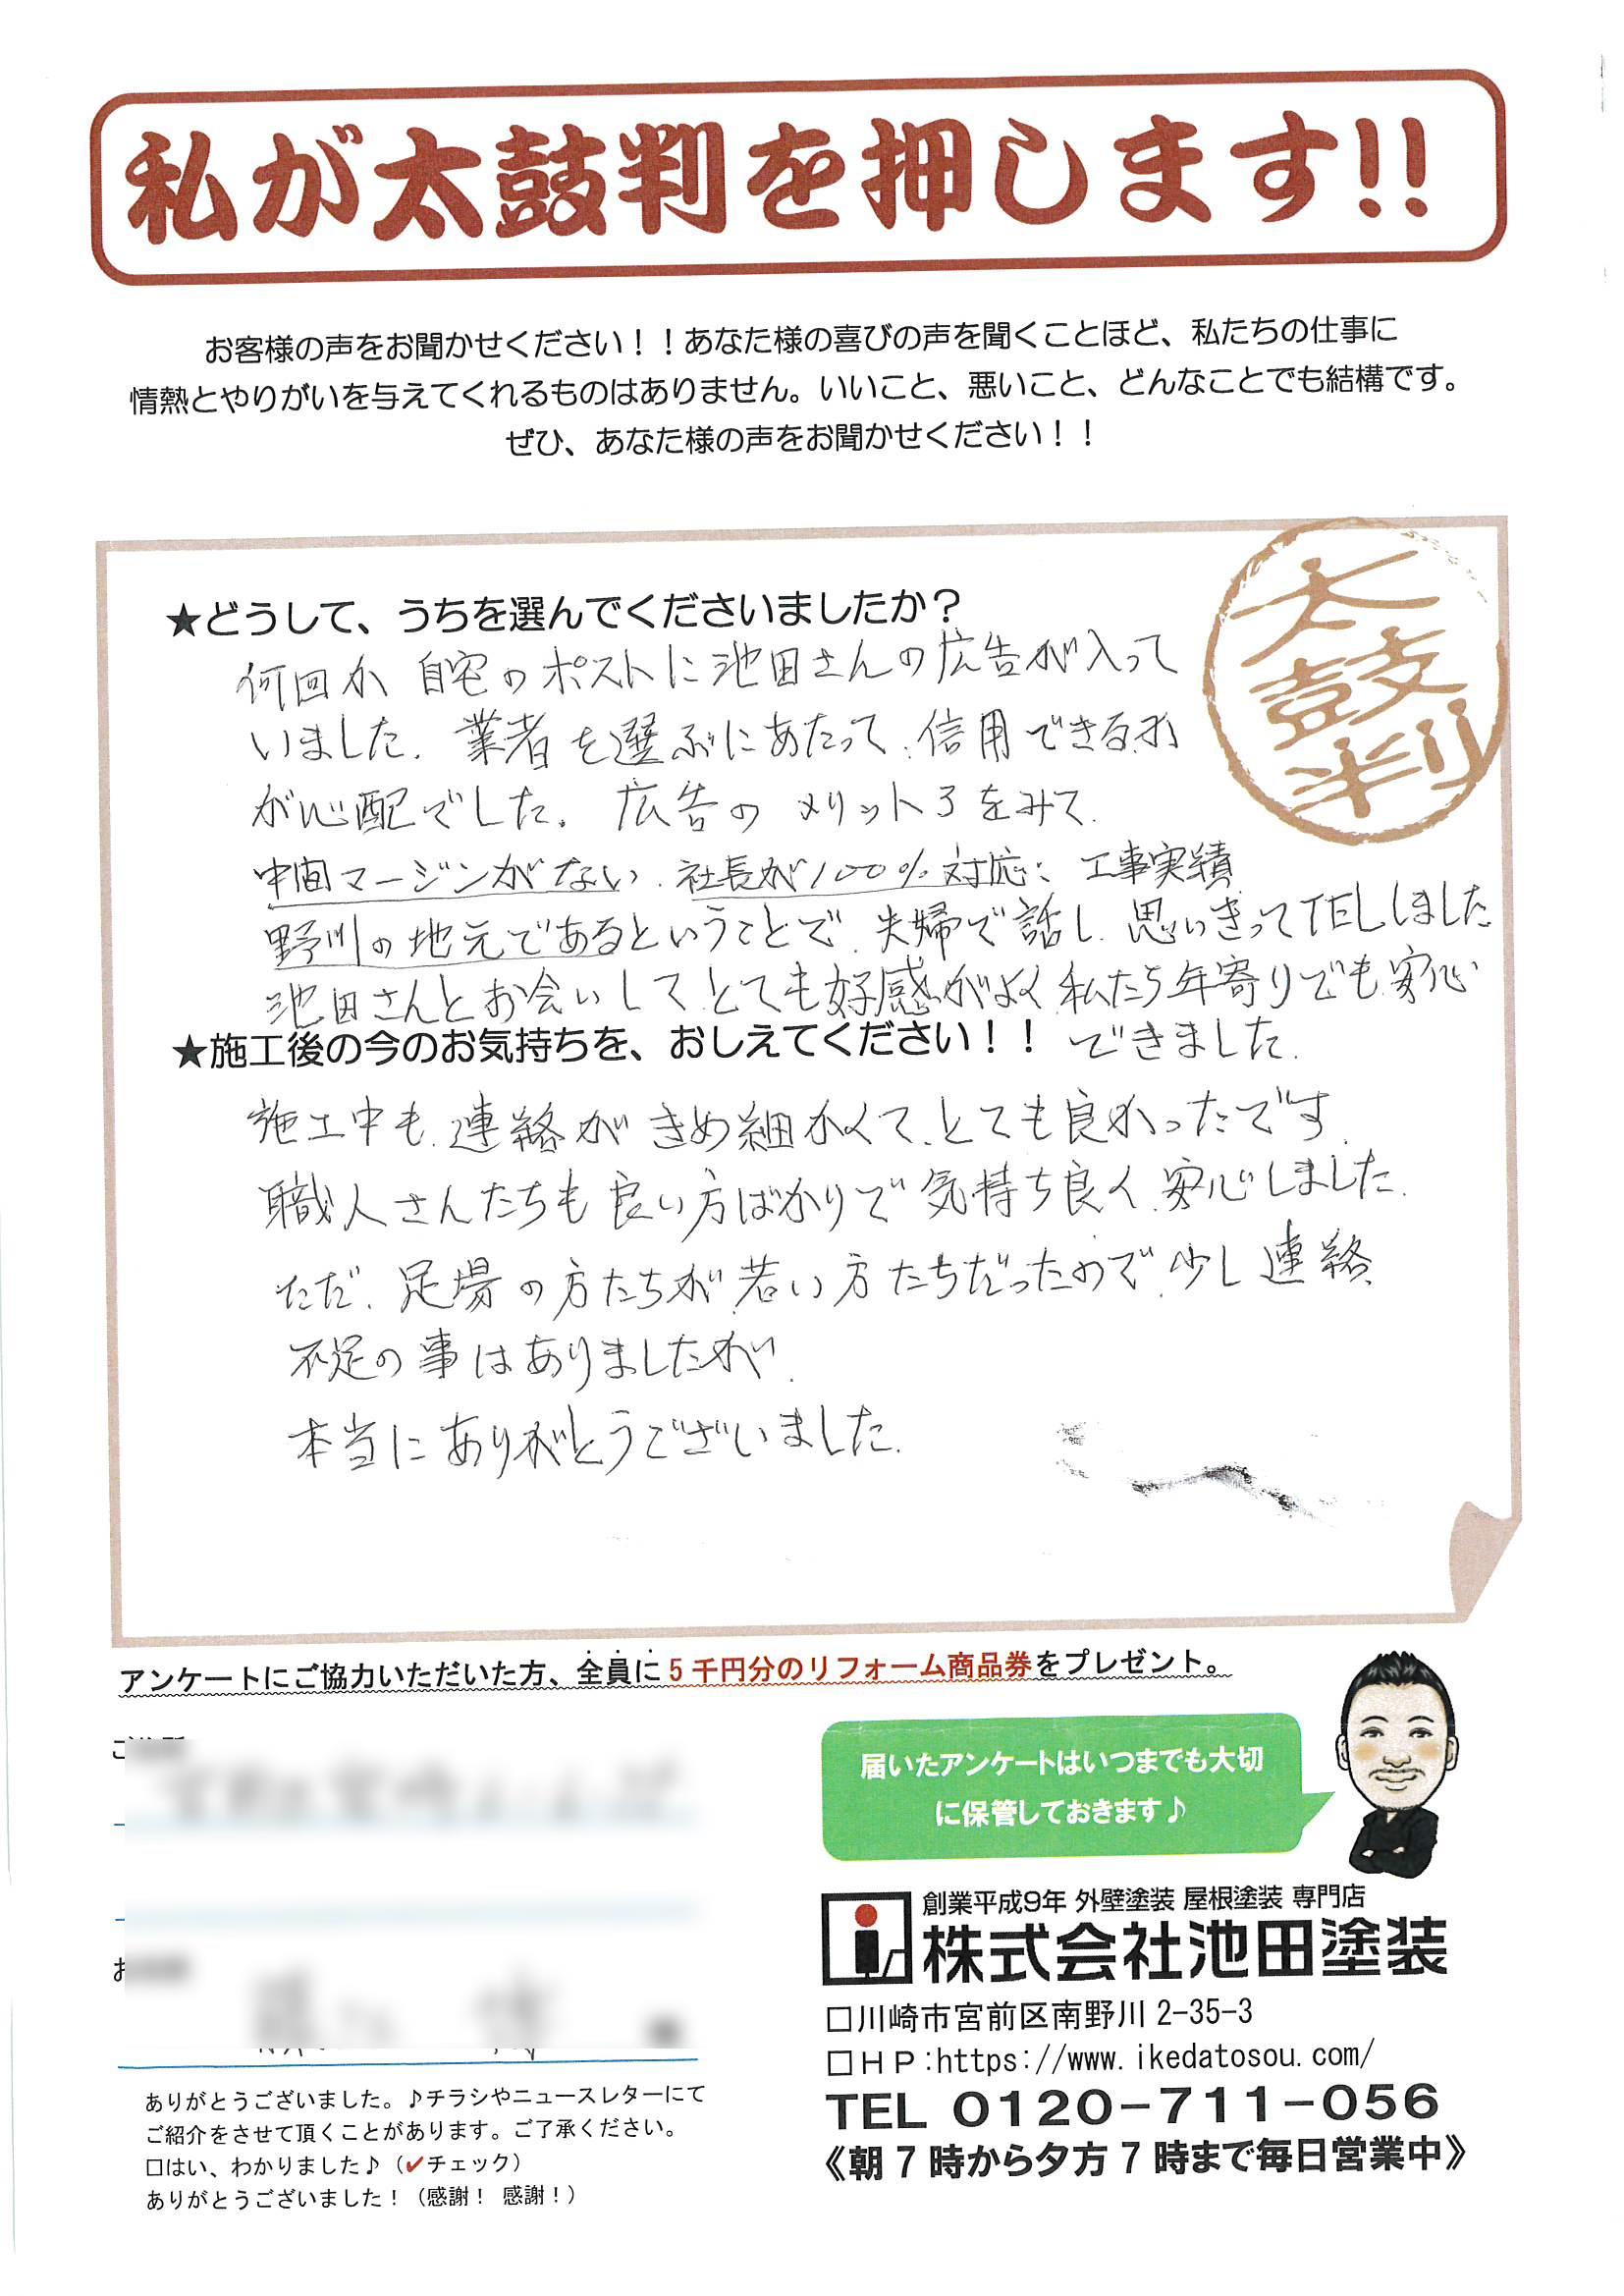 私が太鼓判を押します!!
お客様の声をお聞かせください！！あなた様の喜びの声を聞くことほど、私たちの仕事に
情熱とやりがいを与えてくれるものはありません。いいこと、悪いこと、どんなことでも結構です。
ぜひ、あなた様の声をお聞かせください！！
太鼓判
★どうして、うちを選んでくださいましたか？
何回か 自宅のポストに池田さんの広告が入って
いました. 業者を選ぶにあたって、信用できるか
が心配でした. 広告の メリット3をみて.
中間マージンがない. 社長が100%対応: 工事実績
野川の地元であるということで. 夫婦で話し. 思いきってTELしました
池田さんとお会いして、とても好感がよく私たち年寄りでも安心
できました.
★施工後の今のお気持ちを、おしえてください！！
施工中も、連絡がきめ細かくて、とても良かったです.
職人さんたちも良い方ばかりで気持ち良く、安心しました.
ただ、足場の方たちが若い方たちだったので、少し連絡
不足の事はありましたが.
本当にありがとうございました.
アンケートにご協力いただいた方、全員に５千円分のリフォーム商品券をプレゼント。
届いたアンケートはいつまでも大切
に保管しておきます♪
創業平成9年 外壁塗装 屋根塗装 専門店
株式会社池田塗装
□川崎市宮前区南野川 2-35-3
□ＨＰ:https://www.ikedatosou.com/
TEL 0120－711－056
《朝７時から夕方７時まで毎日営業中》
ありがとうございました。♪チラシやニュースレターにて
ご紹介をさせて頂くことがあります。ご了承ください。
□はい、わかりました♪（✔チェック）
ありがとうございました！（感謝！ 感謝！）